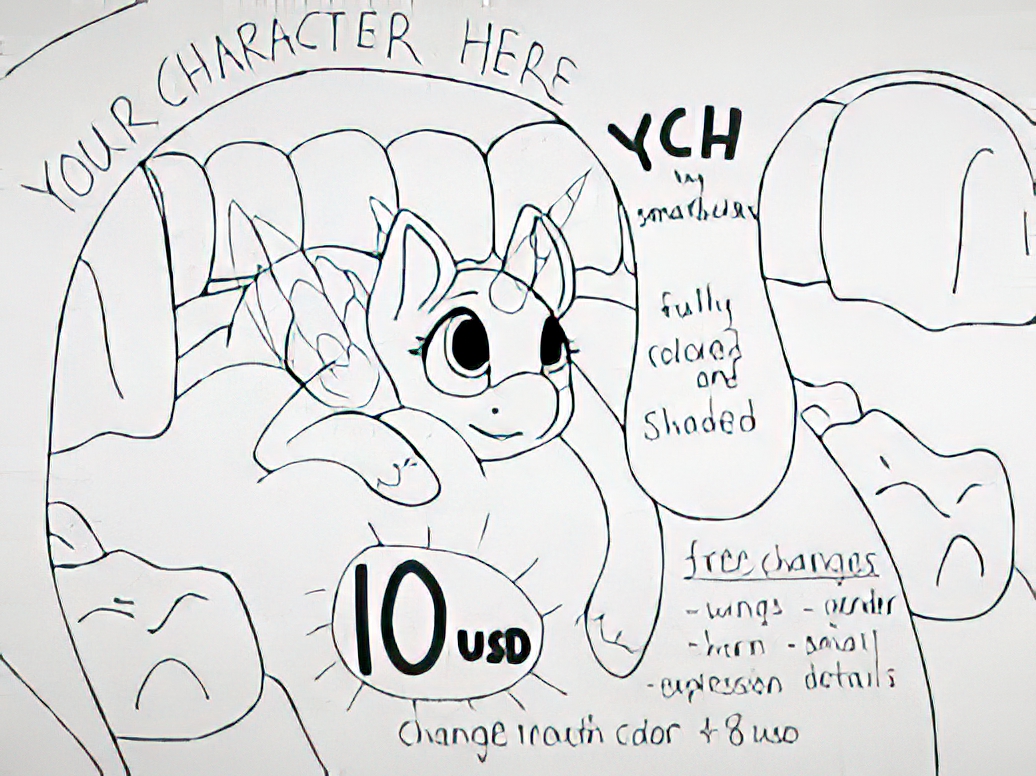 YOUR CHARACTER HERE
YCH
by
fully
colored
and
Shaded
10 USD
free changes
-wings - gender
-horn - small
-expression details
change color + 8 USD